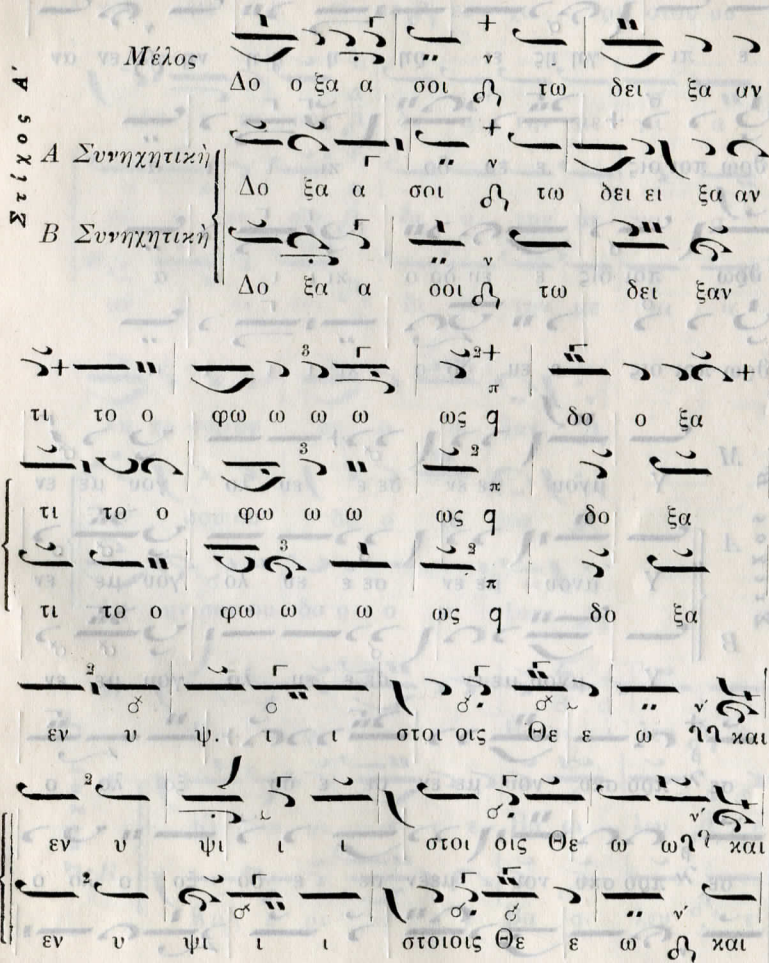 Στίχος Α'
Μέλος
Δο ο ξα α σοι τω δει ξα αν
Α Συνηχητικὴ
Δο ξα α σοι τω δει ει ξα αν
Β Συνηχητικὴ
Δο ξα α σοι τω δει ξαν
τι το ο φω ω ω ω ως q δο ο ξα
τι το ο φω ω ω ως q δο ξα
τι το ο φω ω ω ως q δο ξα
εν υ ψ. ι ι στοι οις Θε ε ω και
εν υ ψι ι ι στοι οις Θε ω ω και
εν υ ψι ι ι στοιοις Θε ε ω και